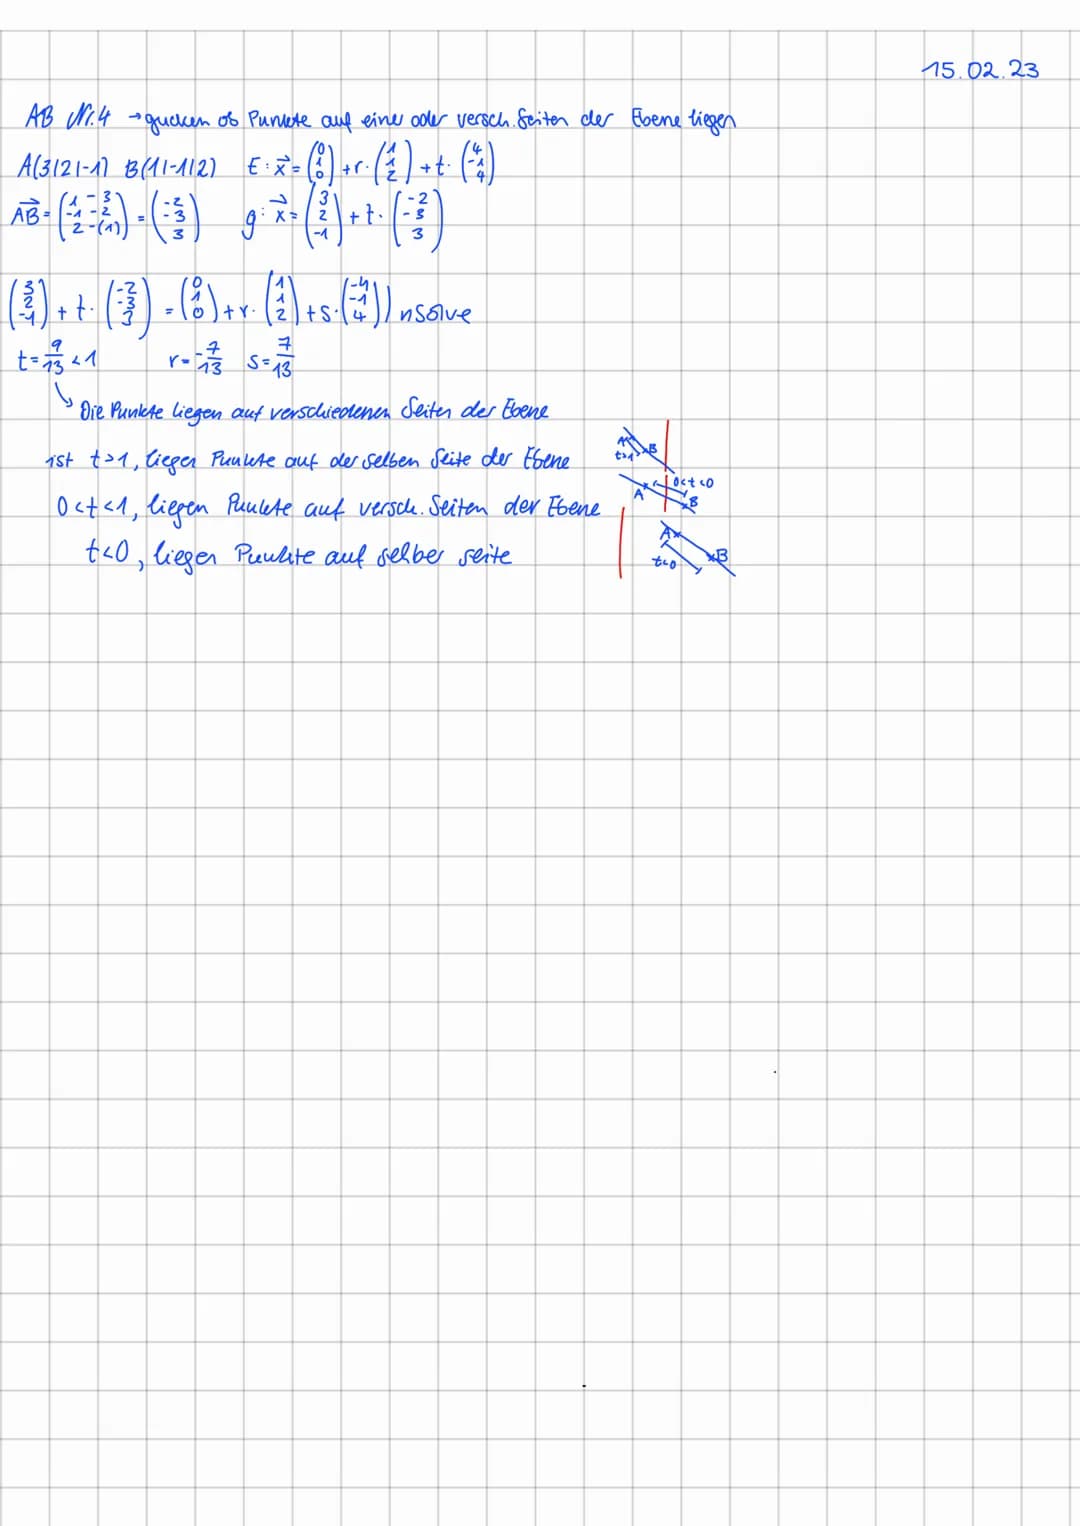 15.02.23
AB Nr.4 → gucken ob Punkte auf einer oder versch. Seiten der Ebene liegen
A(3|2|-1) B(1|-1|2) E: x⃗ = (0 1 0) + r · (1 1 2) + t · (4 -1 4)
AB⃗ = (1 - 3 -1 - 2 2 - (1)) = (-2 -3 3) g: x⃗ = (3 2 -1) + t · (-2 -3 3)
(3 2 -1) + t · (-2 -3 3) = (0 1 0) + r · (1 1 2) + s · (-4 -1 4) | nsolve
t = 9/13 < 1 r = -7/13 s = 7/13
↳ Die Punkte liegen auf verschiedenen Seiten der Ebene
ist t>1, liegen Punkte auf der selben Seite der Ebene
0<t<1, liegen Punkte auf versch. Seiten der Ebene
t<0, liegen Punkte auf selber seite
A B
t>1
0<t<0
A B
A B
t<0